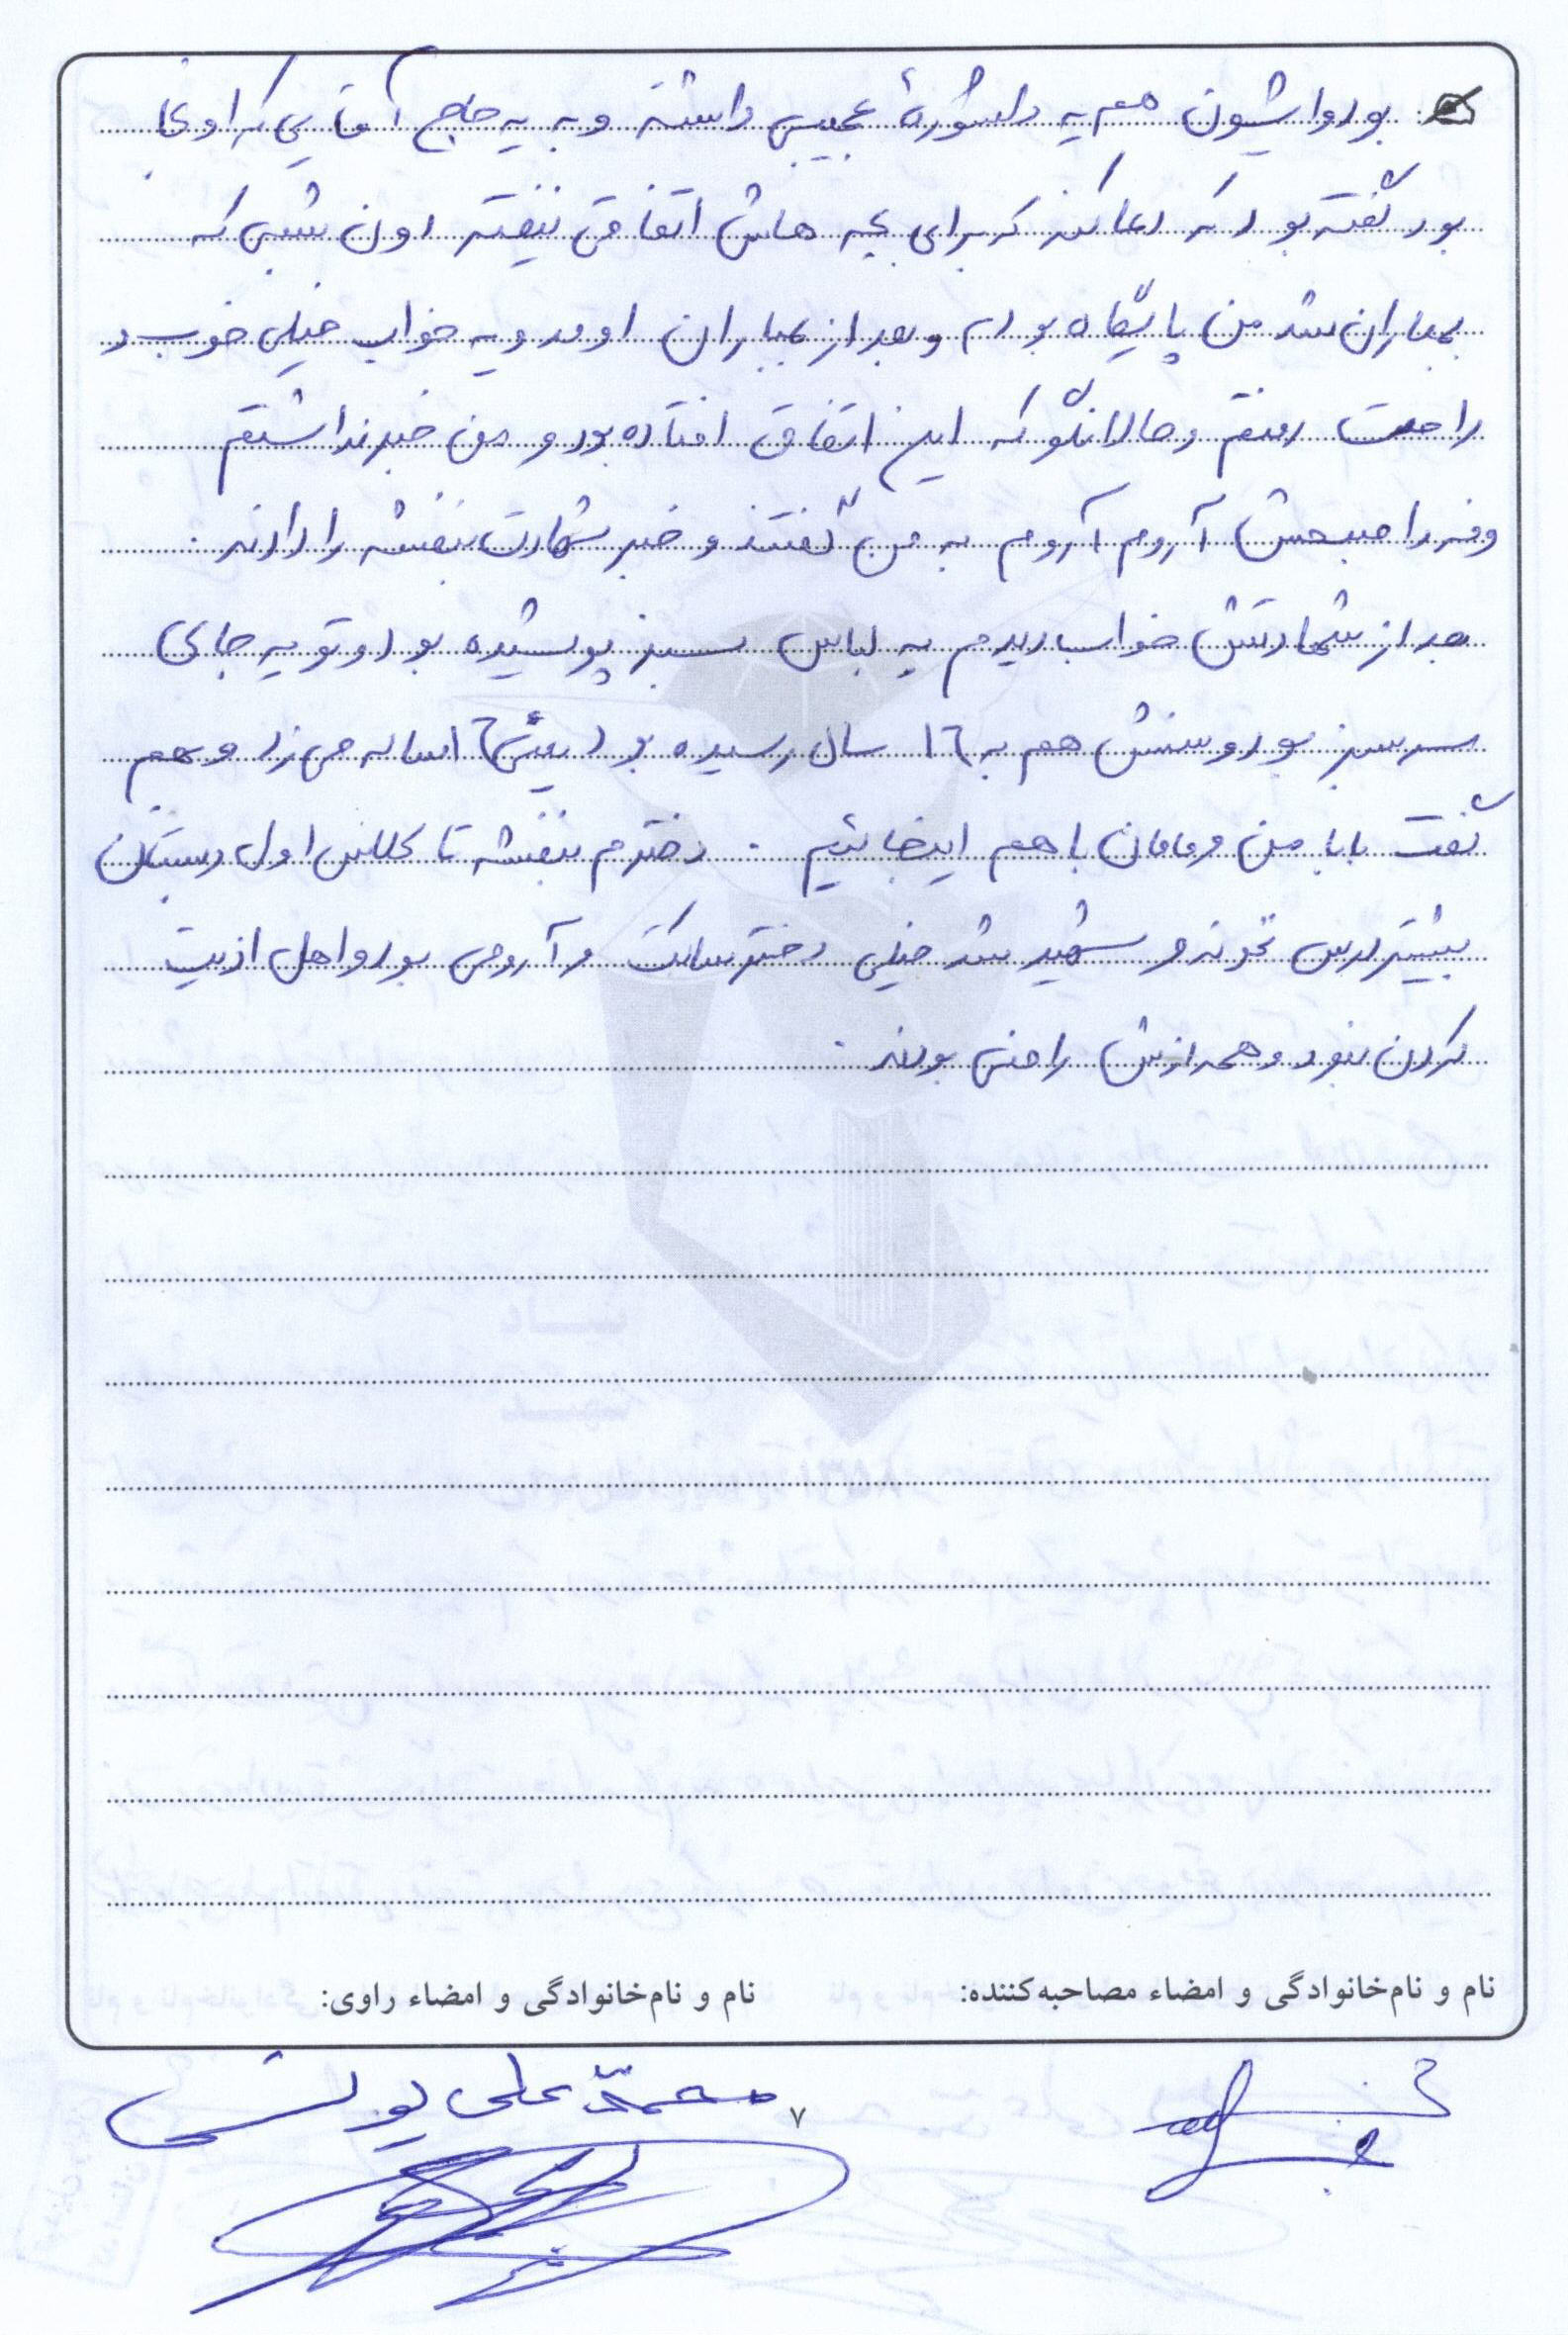 بود و ایشون هم یه دلشورهٔ عجیبی داشته و به یه حاج آقایی که اونجا
بود گفته بود که دعا کند که برای بچه هاش اتفاقی نیفته اون شبی که
بمباران شد من پایگاه بودم و بعد از بمباران اومد و یه خواب خیلی خوب و
راحت رفتم و حالا نگو که این اتفاق افتاده بود و من خبر نداشتم
و فردا صبحش آروم آروم به من گفتند و خبر شهادت بنفشه را دادند.
بعد از شهادتش خواب دیدم یه لباس سبز پوشیده بود و تو یه جای
سرسبز بود و سنش هم به ١٦ سال رسیده بود می زد و بهم
گفت بابا من و مامان با هم اینجائیم. دخترم بنفشه تا کلاس اول دبستان
بیشتر درس نخونه و شهید شد خیلی دختر ساکت و آرومی بود و اهل اذیت
کردن نبود و همه ازش راضی بودند.
نام و نام‌خانوادگی و امضاء مصاحبه‌کننده:
نام و نام‌خانوادگی و امضاء راوی:
محمد علی یونسی
٧